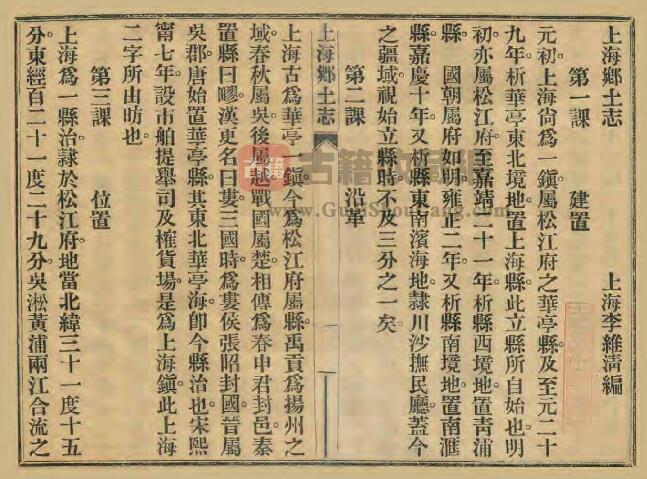 上海鄉土志
上海李維清編
第一課　建置
元初上海尙爲一鎭屬松江府之華亭縣及至元二十
九年析華亭東北境地置上海縣此立縣所自始也明
初亦屬松江府至嘉靖二十一年析縣西境地置靑浦
縣　國朝屬府如明雍正二年又析縣南境地置南滙
縣嘉慶十年又析縣東南濱海地隸川沙撫民廳蓋今
之疆域視始立縣時不及三分之一矣
第二課　沿革
上海鄉土志
一
上海古爲華亭一鎭今爲松江府屬縣禹貢爲揚州之
域春秋屬吳後屬越戰國屬楚相傳爲春申君封邑秦
置縣曰疁漢更名曰婁三國時爲婁侯張昭封國晉屬
吳郡唐始置華亭縣其東北華亭海卽今縣治也宋熙
甯七年設市舶提舉司及榷貨場是爲上海鎭此上海
二字所由昉也
第三課　位置
上海爲一縣治隸於松江府地當北緯三十一度十五
分東經百二十一度二十九分吳淞黃浦兩江合流之
古籍
www.GujiShuCang.com